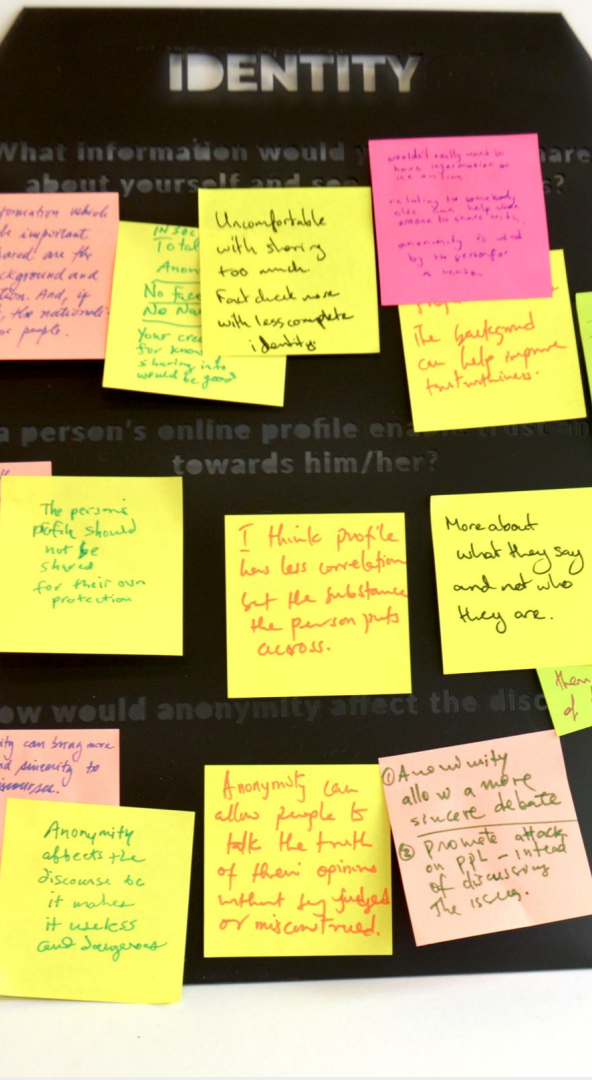 IDENTITY
What information would y are
about yourself and s s?
formation which
be important
are the
ckground and
tion. And, if
, the nationali
people.
IN SOC
Total
Anon
No face
No Na
Your cre
for know
sharing info
would be good
Uncomfortable
with sharing
too much.
Fact check more
with less complete
identity.
wouldn't really want to
have information on
me online
relating to somebody
else can help when
to share with.
anonymity is used
by the person for
a reason.
The background
can help improve
trustworthiness.
a person's online profile ena trust an
towards him/her?
The person's
profile should
not be
shared
for their own
protection
I think profile
has less correlation
but the substance
the person puts
across.
More about
what they say
and not who
they are.
them
of
ow would anonymity affect the disc
ity can bring more
d sincerity to
iscourses.
Anonymity
affects the
discourse bc
it makes
it useless
and dangerous
Anonymity can
allow people to
talk the truth
of their opinions
without judged
or misconstrued.
① Anonimity
allow a more
sincere debate
② Promote attack
on ppl - intead
of discussing
the issues.